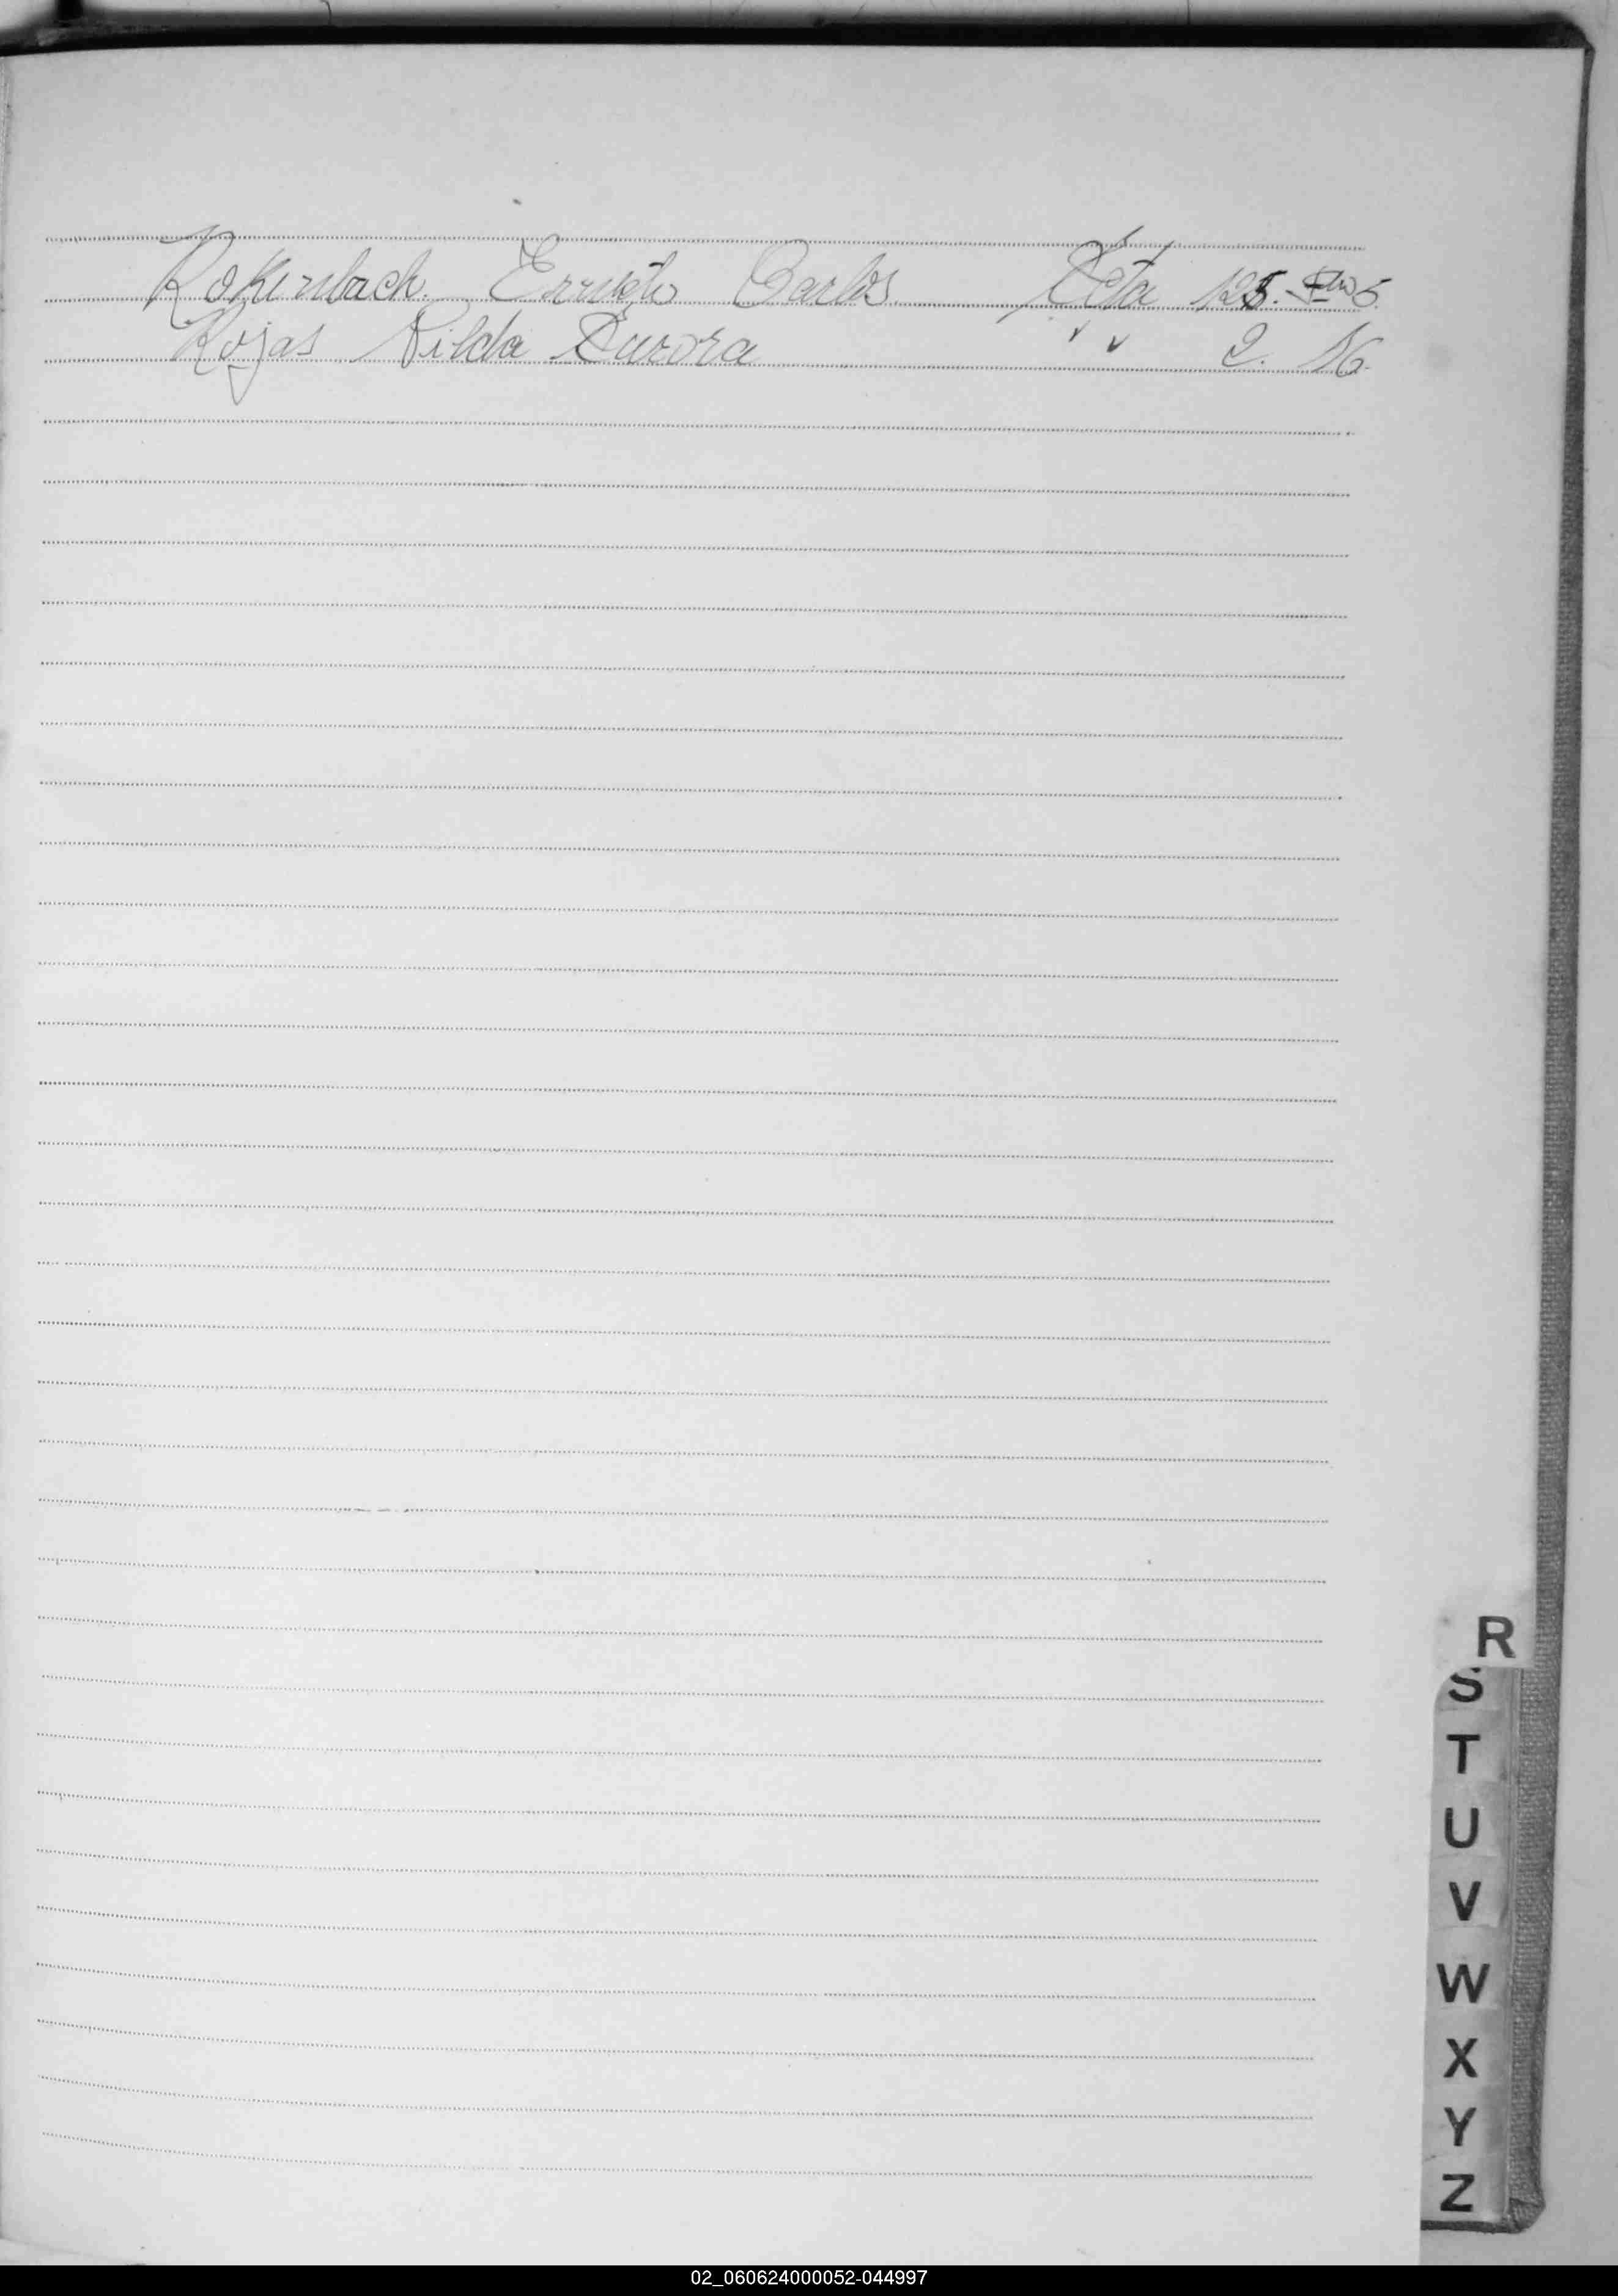 Rokembach Ernesto Carlos Acta 125. Flio 5.
Rojas Nilda Aurora " " 2. 16.
R
S
T
U
V
W
X
Y
Z
02_060624000052-044997